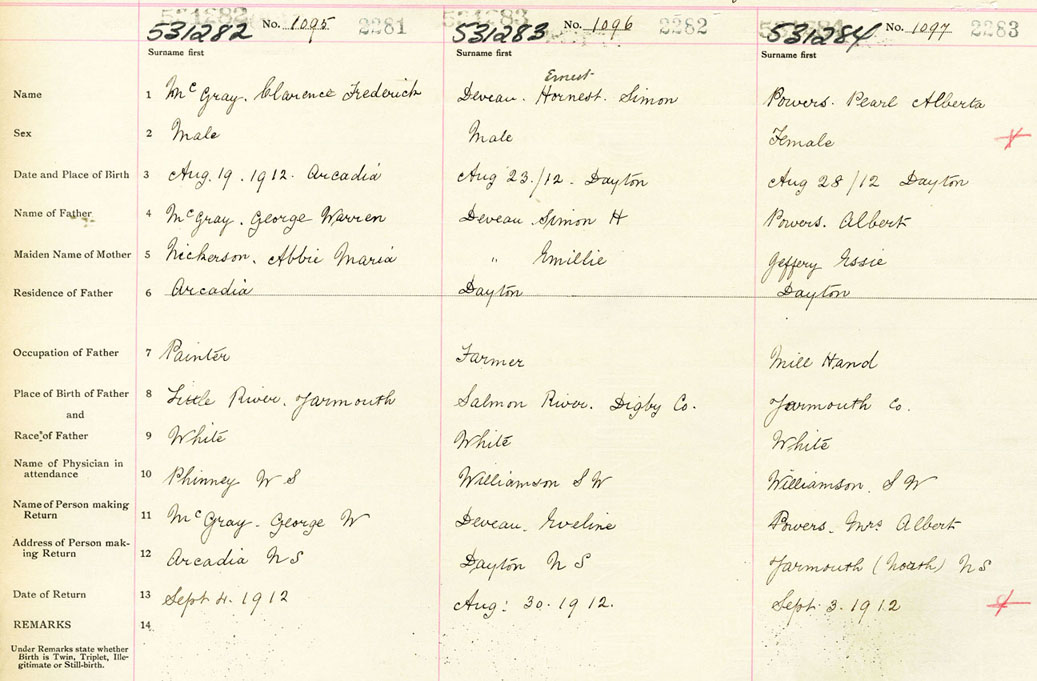 531282 No. 1095 2281 531283 No. 1096 2282 531284 No. 1097 2283
Surname first Surname first Surname first
Ernest
Name 1 McGray. Clarence Frederick Deveau. Hornest. Simon Powers. Pearl Alberta
Sex 2 Male Male Female
Date and Place of Birth 3 Aug. 19. 1912. Arcadia Aug 23/12. Dayton Aug 28/12 Dayton
Name of Father 4 McGray. George Warren Deveau Simon H Powers. Albert
Maiden Name of Mother 5 Nickerson. Abbie Maria " Emillie Geffery Essie
Residence of Father 6 Arcadia Dayton Dayton
Occupation of Father 7 Painter Farmer Mill Hand
Place of Birth of Father 8 Little River. Yarmouth Salmon River. Digby Co. Yarmouth Co.
and
Race of Father 9 White White White
Name of Physician in
attendance 10 Phinney W S Williamson S W Williamson. S W
Name of Person making
Return 11 McGray. George W Deveau. Eveline Powers. Mrs Albert
Address of Person mak-
ing Return 12 Arcadia N S Dayton N S Yarmouth (North) N S
Date of Return 13 Sept 4. 1912 Aug: 30. 1912. Sept. 3. 1912
REMARKS 14
Under Remarks state whether
Birth is Twin, Triplet, Ille-
gitimate or Still-birth.